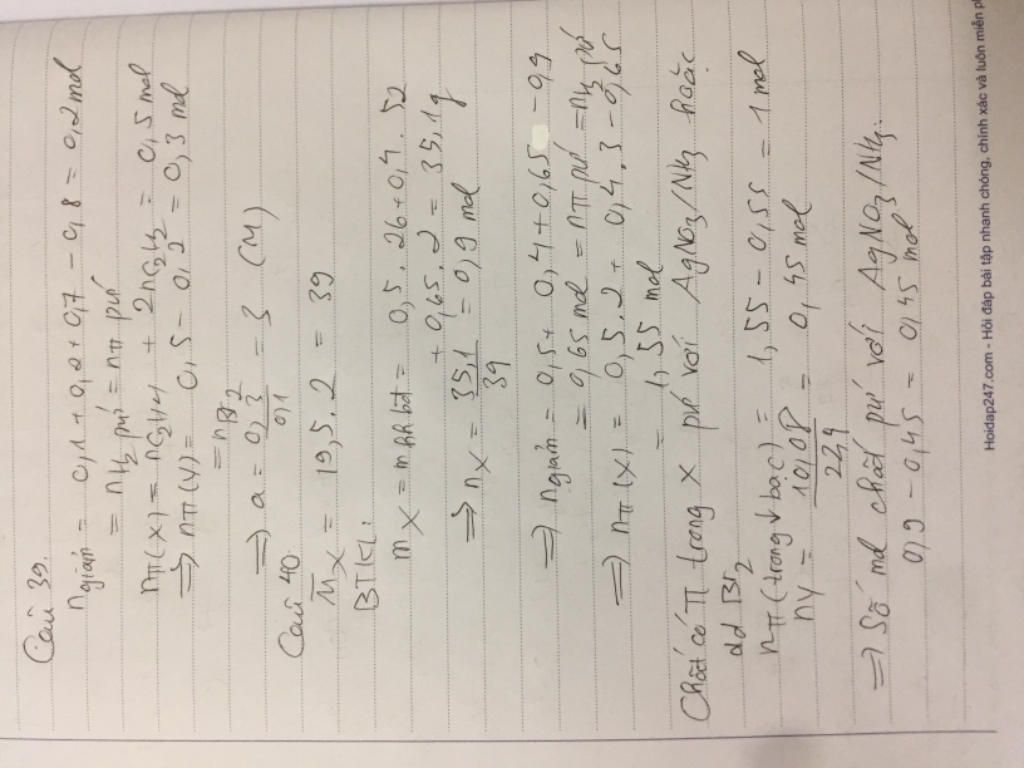 Câu 39.
n giảm = 0,1 + 0,2 + 0,7 - 0,8 = 0,2 mol
= nH₂ pứ = nπ pứ
nπ(X) = nC₂H₄ + 2nC₂H₂ = 0,5 mol
⇒ nπ(Y) = 0,5 - 0,2 = 0,3 mol
= nBr₂
⇒ a = 0,3/0,1 = 3 (M)
Câu 40.
M̅X = 19,5.2 = 39
BTKL:
mX = mhh bđ = 0,5.26 + 0,4.52
+ 0,65.2 = 35,1g
⇒ nX = 35,1/39 = 0,9 mol
⇒ n giảm = 0,5 + 0,4 + 0,65 - 0,9
= 0,65 mol = nπ pứ = nH₂ pứ
⇒ nπ(X) = 0,5.2 + 0,4.3 - 0,65
= 1,55 mol
Chất có π trong X pứ với AgNO₃/NH₃ hoặc
dd Br₂
nπ(trong ↓ bạc) = 1,55 - 0,55 = 1 mol
nY = 10,08/22,4 = 0,45 mol
⇒ Số mol chất pứ với AgNO₃/NH₃:
0,9 - 0,45 = 0,45 mol
Hoidap247.com - Hỏi đáp bài tập nhanh chóng, chính xác và luôn miễn